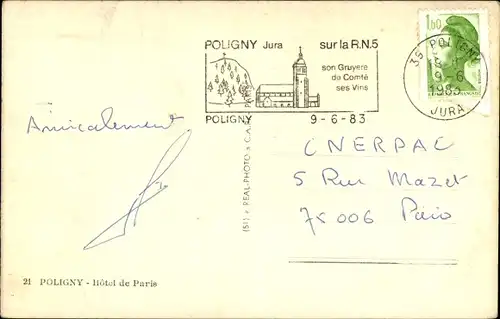 POLIGNY Jura sur la R.N.5
son Gruyere
de Comté
ses Vins
POLIGNY 9-6-83
1,60
39 POLIGNY
9-6
JURA
Amicalement
CNERPAC
5 Rue Mazet
75006 Paris
REAL-PHOTO
21 POLIGNY - Hôtel de Paris